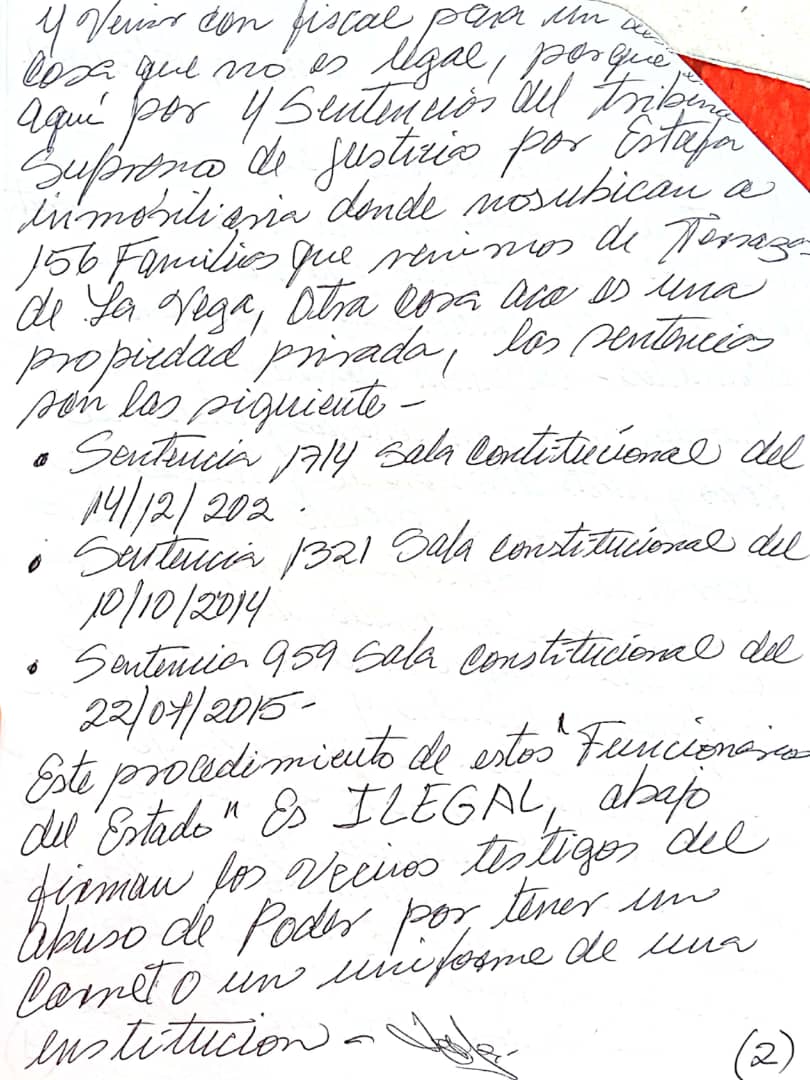 y Venir con fiscal para un
cosa que no es legal, porque
aquí por 4 Sentencias del tribuna
Supremo de justicia por Estafa
inmobiliaria donde nos ubican a
156 Familias que venimos de Terrazas
de La Vega, Otra cosa aca es una
propiedad privada, las sentencias
son las siguiente -
• Sentencia 1714 Sala Contitucional del
14/12/202.
• Sentencia 1321 Sala constitucional del
10/10/2014
• Sentencia 959 Sala constitucional del
22/07/2015-
Este procedimiento de estos "Funcionarios
del Estado" Es ILEGAL, abajo
firman los Vecinos testigos del
abuso de Poder por tener un
Carnet O un uniforme de una
institucion -
(2)